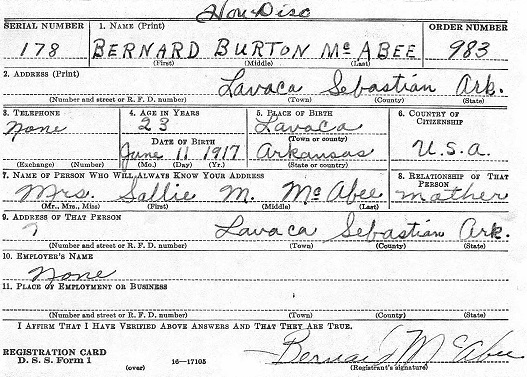 Hon Disc
SERIAL NUMBER 1. NAME (Print) ORDER NUMBER
178 BERNARD BURTON McABEE 983
(First) (Middle) (Last)
2. ADDRESS (Print)
Lavaca Sebastian Ark.
(Number and street or R. F. D. number) (Town) (County) (State)
3. TELEPHONE 4. AGE IN YEARS 5. PLACE OF BIRTH 6. COUNTRY OF CITIZENSHIP
None 23 Lavaca
(Town or county)
DATE OF BIRTH
June 11 1917 Arkansas U.S.a.
(Exchange) (Number) (Mo.) (Day) (Yr.) (State or country)
7. NAME OF PERSON WHO WILL ALWAYS KNOW YOUR ADDRESS 8. RELATIONSHIP OF THAT PERSON
Mrs. Sallie M. McAbee mother
(Mr., Mrs., Miss) (First) (Middle) (Last)
9. ADDRESS OF THAT PERSON
Lavaca Sebastian Ark.
(Number and street or R. F. D. number) (Town) (County) (State)
10. EMPLOYER'S NAME
None
11. PLACE OF EMPLOYMENT OR BUSINESS
(Number and street or R. F. D. number) (Town) (County) (State)
I AFFIRM THAT I HAVE VERIFIED ABOVE ANSWERS AND THAT THEY ARE TRUE.
REGISTRATION CARD
D. S. S. Form 1 (over) 16—17105 Bernard McAbee
(Registrant's signature)